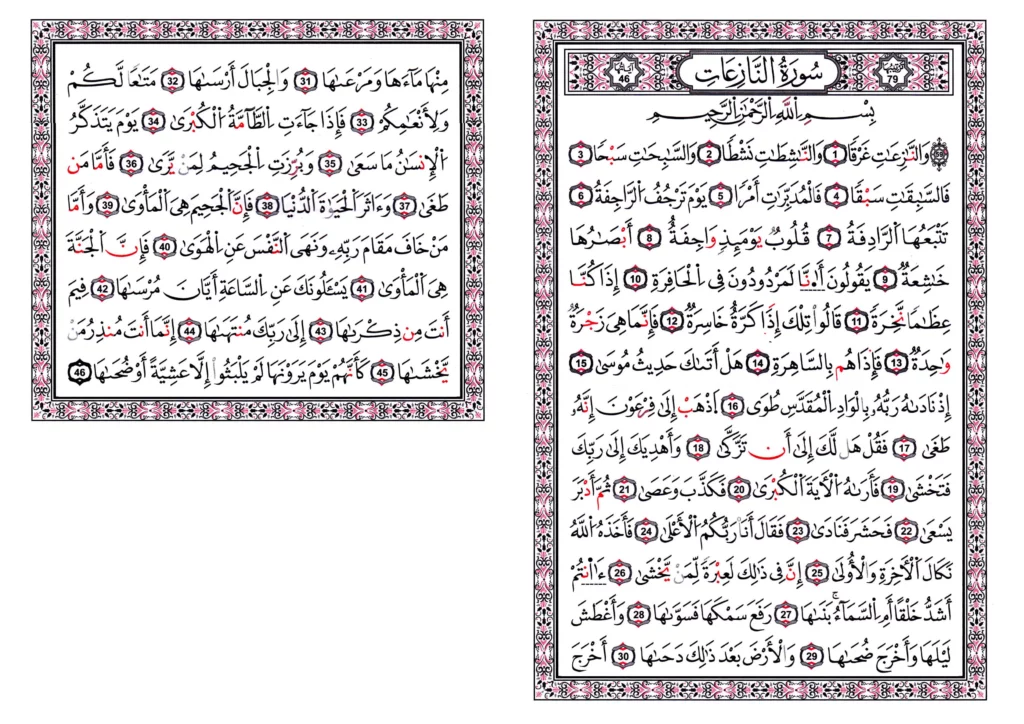 ترتيبها 79 سُورَةُ النَّازِعَاتِ آياتها 46
بِسْمِ اللَّهِ الرَّحْمَٰنِ الرَّحِيمِ
وَالنَّازِعَاتِ غَرْقًا 1 وَالنَّاشِطَاتِ نَشْطًا 2 وَالسَّابِحَاتِ سَبْحًا 3
فَالسَّابِقَاتِ سَبْقًا 4 فَالْمُدَبِّرَاتِ أَمْرًا 5 يَوْمَ تَرْجُفُ الرَّاجِفَةُ 6
تَتْبَعُهَا الرَّادِفَةُ 7 قُلُوبٌ يَوْمَئِذٍ وَاجِفَةٌ 8 أَبْصَارُهَا
خَاشِعَةٌ 9 يَقُولُونَ أَءِنَّا لَمَرْدُودُونَ فِي الْحَافِرَةِ 10 إِذَا كُنَّا
عِظَامًا نَّخِرَةً 11 قَالُوا تِلْكَ إِذًا كَرَّةٌ خَاسِرَةٌ 12 فَإِنَّمَا هِيَ زَجْرَةٌ
وَاحِدَةٌ 13 فَإِذَا هُم بِالسَّاهِرَةِ 14 هَلْ أَتَىٰكَ حَدِيثُ مُوسَىٰ 15
إِذْ نَادَىٰهُ رَبُّهُ بِالْوَادِ الْمُقَدَّسِ طُوًى 16 اذْهَبْ إِلَىٰ فِرْعَوْنَ إِنَّهُ
طَغَىٰ 17 فَقُلْ هَل لَّكَ إِلَىٰ أَن تَزَكَّىٰ 18 وَأَهْدِيَكَ إِلَىٰ رَبِّكَ
فَتَخْشَىٰ 19 فَأَرَىٰهُ الْآيَةَ الْكُبْرَىٰ 20 فَكَذَّبَ وَعَصَىٰ 21 ثُمَّ أَدْبَرَ
يَسْعَىٰ 22 فَحَشَرَ فَنَادَىٰ 23 فَقَالَ أَنَا رَبُّكُمُ الْأَعْلَىٰ 24 فَأَخَذَهُ اللَّهُ
نَكَالَ الْآخِرَةِ وَالْأُولَىٰ 25 إِنَّ فِي ذَٰلِكَ لَعِبْرَةً لِّمَن يَخْشَىٰ 26 ءَأَنتُمْ
أَشَدُّ خَلْقًا أَمِ السَّمَاءُ بَنَىٰهَا 27 رَفَعَ سَمْكَهَا فَسَوَّىٰهَا 28 وَأَغْطَشَ
لَيْلَهَا وَأَخْرَجَ ضُحَىٰهَا 29 وَالْأَرْضَ بَعْدَ ذَٰلِكَ دَحَىٰهَا 30 أَخْرَجَ
مِنْهَا مَاءَهَا وَمَرْعَىٰهَا 31 وَالْجِبَالَ أَرْسَىٰهَا 32 مَتَاعًا لَّكُمْ
وَلِأَنْعَامِكُمْ 33 فَإِذَا جَاءَتِ الطَّامَّةُ الْكُبْرَىٰ 34 يَوْمَ يَتَذَكَّرُ
الْإِنسَانُ مَا سَعَىٰ 35 وَبُرِّزَتِ الْجَحِيمُ لِمَن يَرَىٰ 36 فَأَمَّا مَن
طَغَىٰ 37 وَءَاثَرَ الْحَيَوٰةَ الدُّنْيَا 38 فَإِنَّ الْجَحِيمَ هِيَ الْمَأْوَىٰ 39 وَأَمَّا
مَنْ خَافَ مَقَامَ رَبِّهِ وَنَهَى النَّفْسَ عَنِ الْهَوَىٰ 40 فَإِنَّ الْجَنَّةَ
هِيَ الْمَأْوَىٰ 41 يَسْـَٔلُونَكَ عَنِ السَّاعَةِ أَيَّانَ مُرْسَىٰهَا 42 فِيمَ
أَنتَ مِن ذِكْرَىٰهَا 43 إِلَىٰ رَبِّكَ مُنتَهَىٰهَا 44 إِنَّمَا أَنتَ مُنذِرُ مَن
يَخْشَىٰهَا 45 كَأَنَّهُمْ يَوْمَ يَرَوْنَهَا لَمْ يَلْبَثُوا إِلَّا عَشِيَّةً أَوْ ضُحَىٰهَا 46